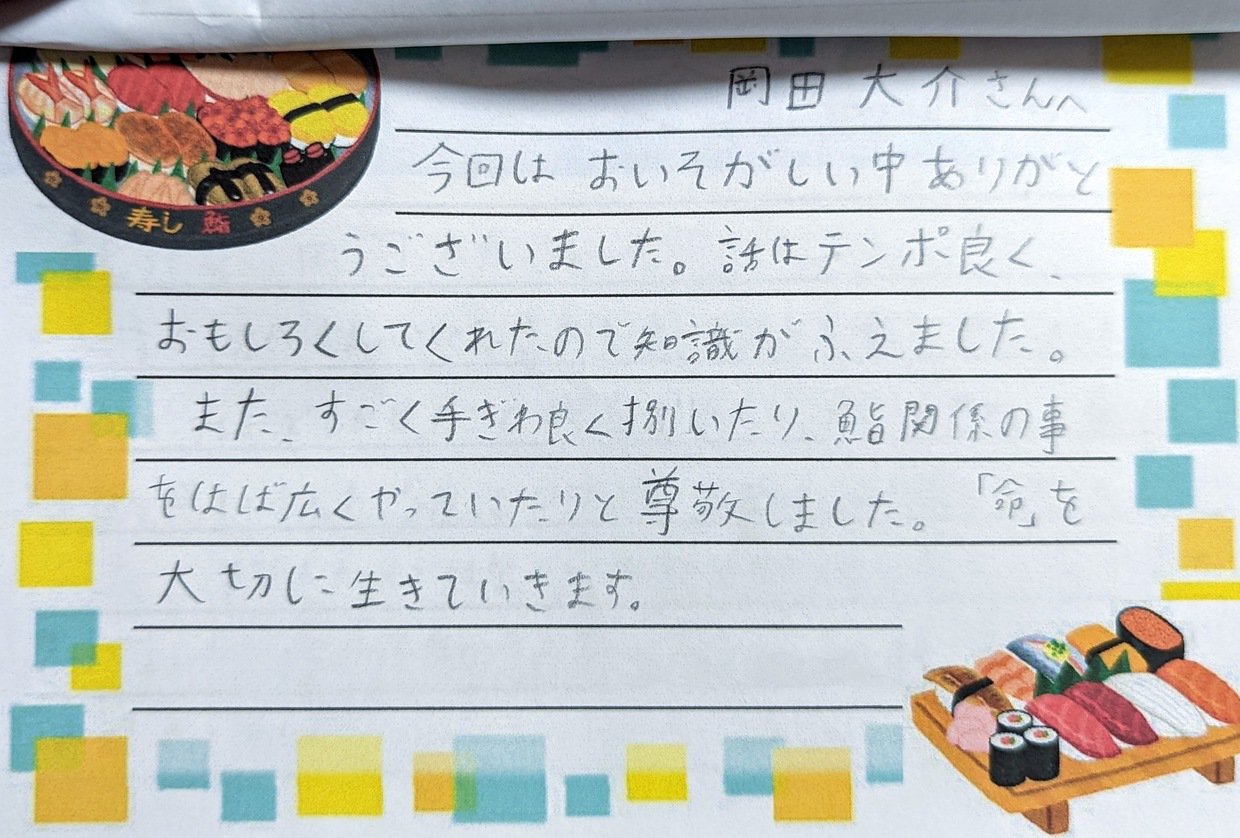 岡田大介さんへ
今回は おいそがしい中 ありがと
うございました。話はテンポ良く、
おもしろくしてくれたので知識がふえました。
また、すごく手ぎわ良く捌いたり、鮨関係の事
をはば広くやっていたりと尊敬しました。「命」を
大切に生きていきます。
寿し 鮨